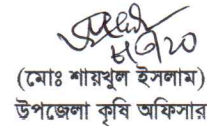 ৮/৭/২০
(মোঃ শায়খুল ইসলাম)
উপজেলা কৃষি অফিসার